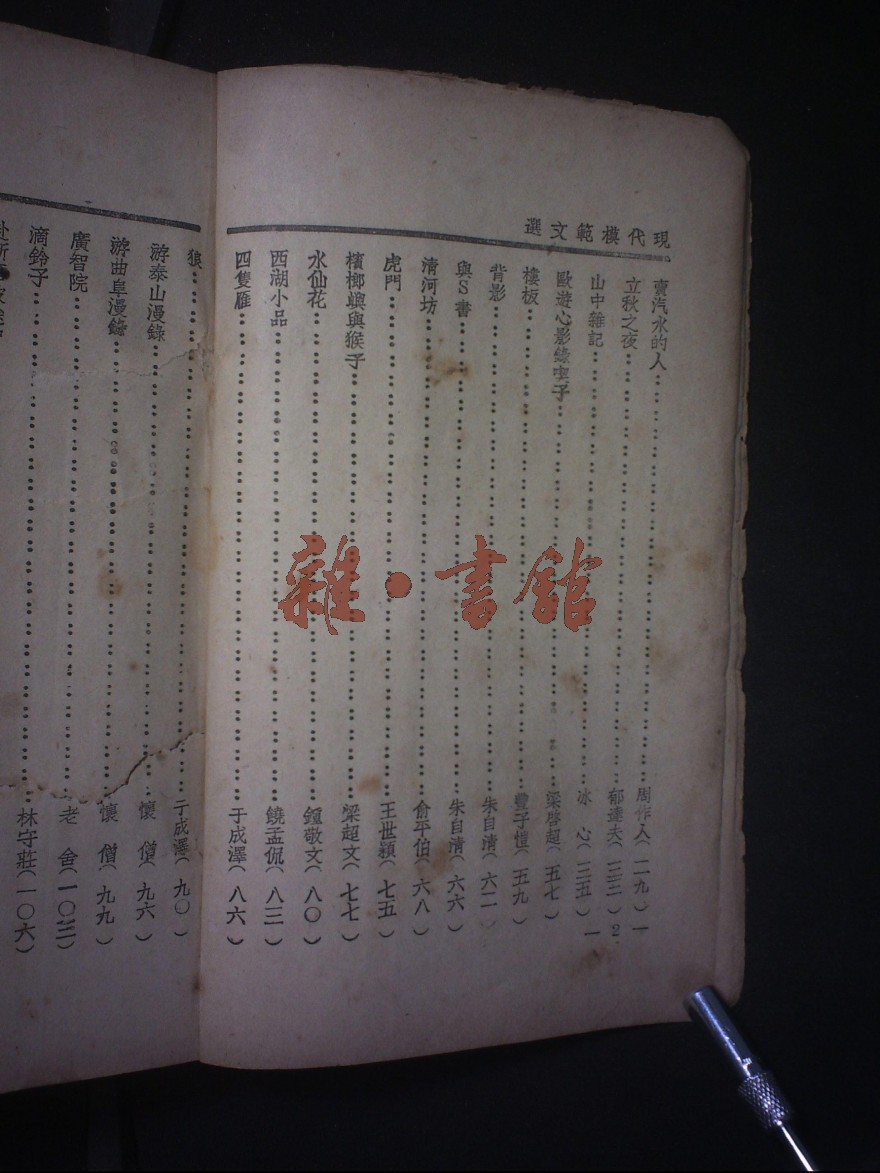 現代模範文選
賣汽水的人……周作人(二九)
立秋之夜……郁達夫(三三)
山中雜記……冰 心(三五)
歐遊心影錄楔子……梁啓超(五七)
樓板……豐子愷(五九)
背影……朱自清(六二)
與S書……朱自清(六六)
清河坊……俞平伯(六八)
虎門……王世穎(七五)
檳榔嶼與猴子……梁超文(七七)
水仙花……鍾敬文(八〇)
西湖小品……饒孟侃(八三)
四隻雁……于成澤(八六)
一2一
狼……于成澤(九〇)
游泰山漫錄……懷 僧(九六)
游曲阜漫錄……懷 僧(九九)
廣智院……老 舍(一〇三)
滴鈴子……林守莊(一〇六)
雜·書館